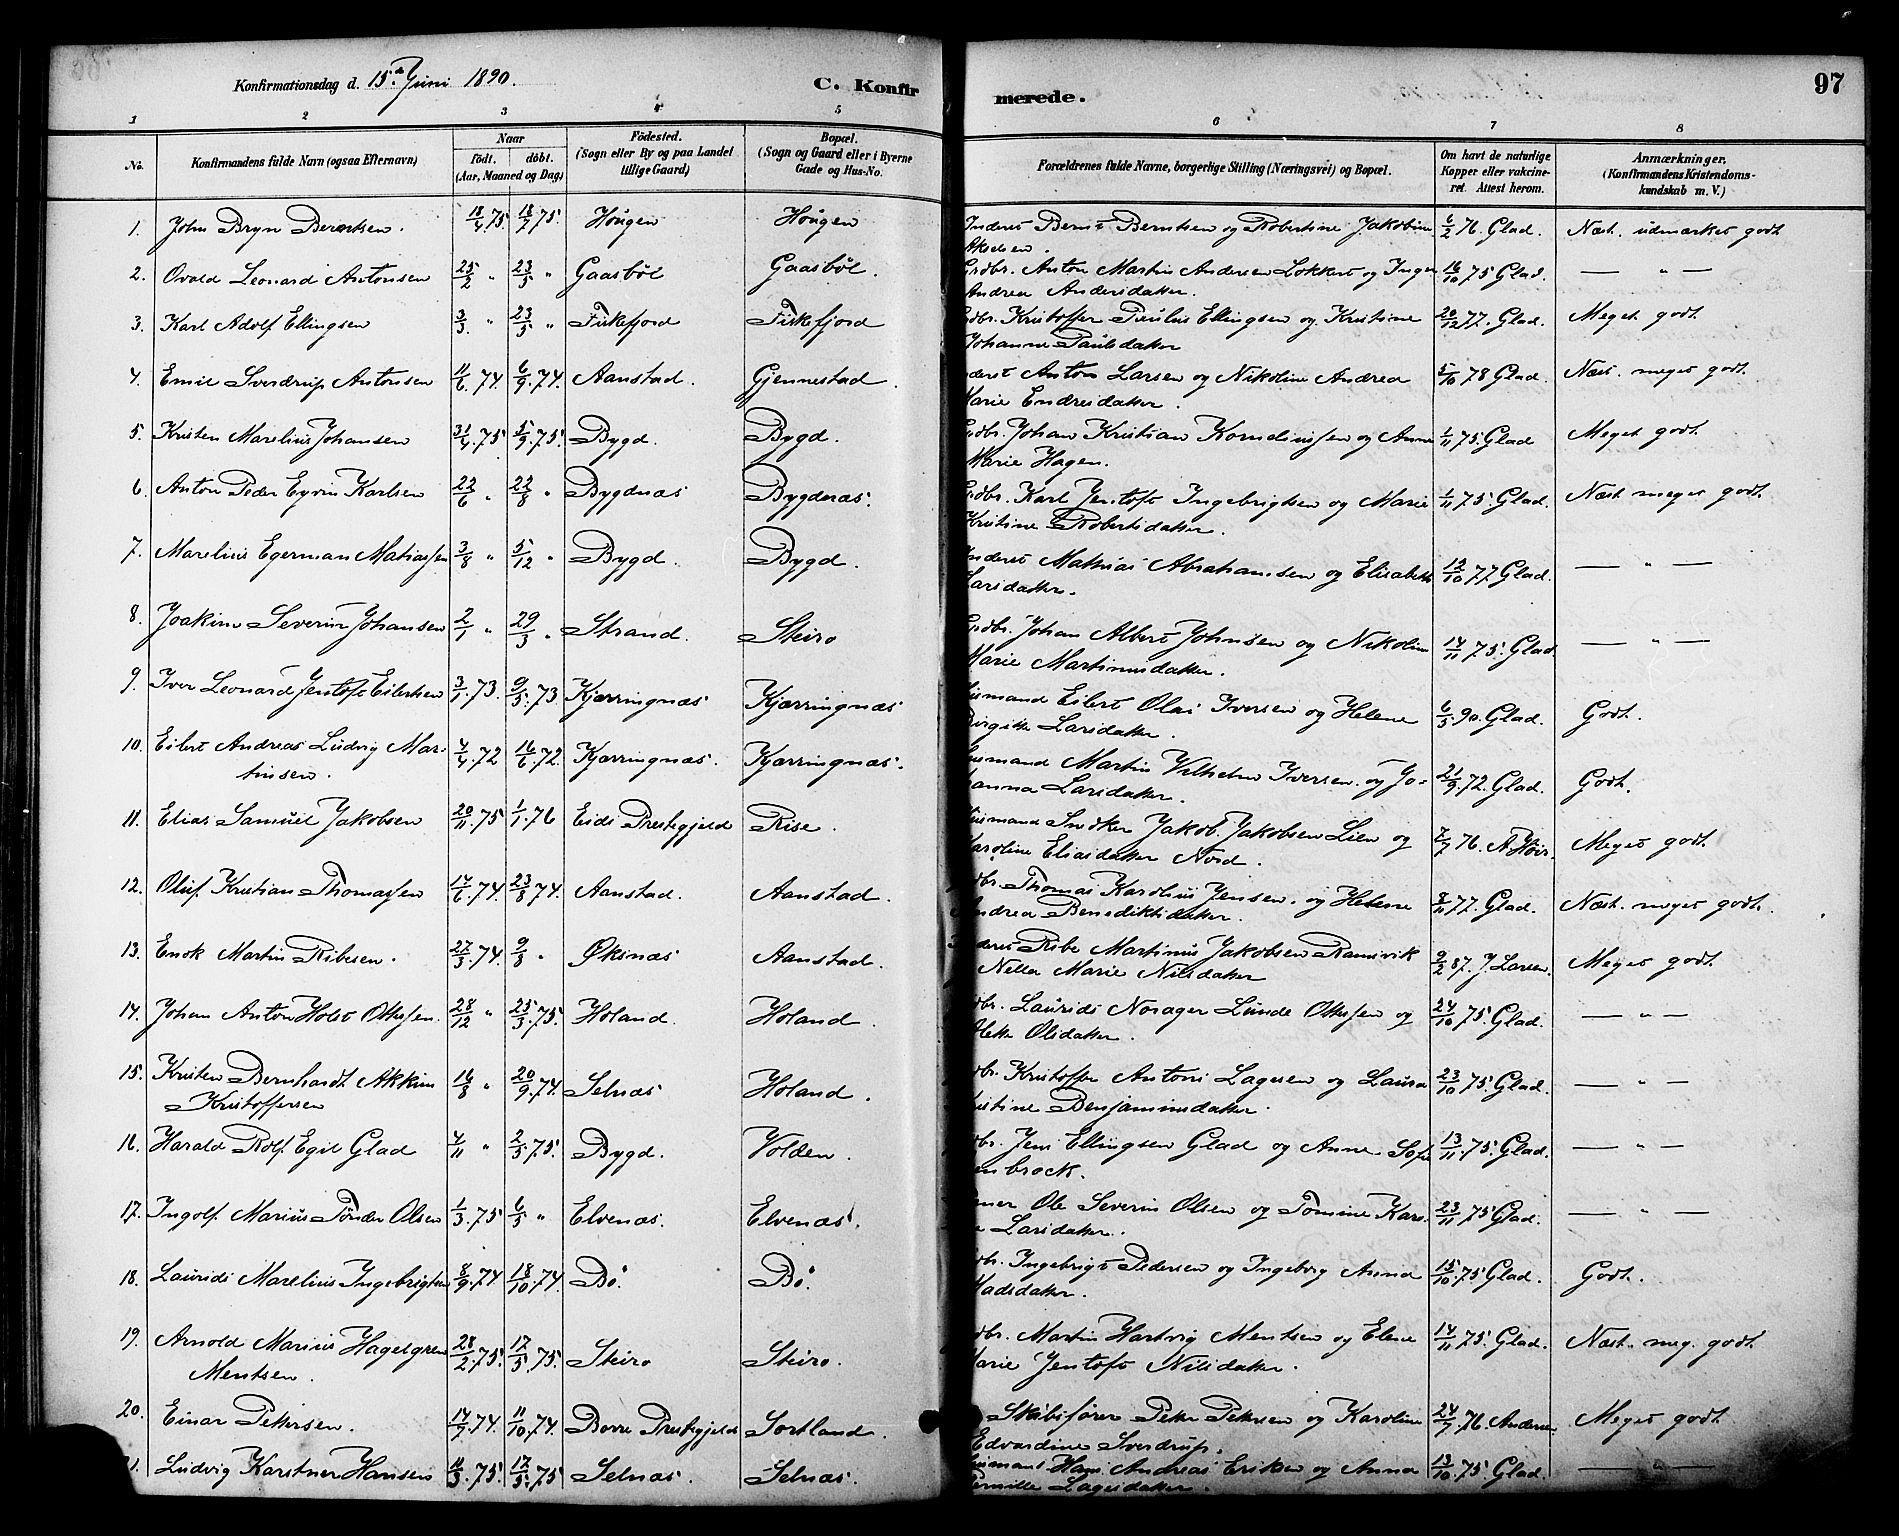 Konfirmationsdag d. 15de Juni 1890.
C. Konfirmerede.
97
1 2 3 4 5 6 7 8
No. Konfirmandens fulde Navn (ogsaa Efternavn) Naar födt. döbt. (Aar, Maaned og Dag) Födested. (Sogn eller By og paa Landet tillige Gaard) Bopæl. (Sogn og Gaard eller i Byerne Gade og Hus-No. Forældrenes fulde Navne, borgerlige Stilling (Næringsvei) og Bopæl. Om havt de naturlige Kopper eller vakcineret. Attest herom. Anmærkninger. (Konfirmandens Kristendomskundskab m. V.)
1. John Bryn Berntsen. 18/4 75. 18/7 75. Hougen Hougen Inderst Bernt Berntsen og Robertine Jakobine 6/2 76. Glad. Næst. udmærket godt
Akselsen.
2. Ovald Leonard Antonsen 25/2 " 23/5 " Gaasböl Gaasböl. Grdbr. Anton Martin Andersen Lokkert og Inger 16/10 75 Glad. — " —
Andrea Andersdatter.
3. Karl Adolf Ellingsen 3/3 " 23/5 " Fiskefjord Fiskefjord Grdbr. Kristoffer Paulus Ellingsen og Kristine 20/12 77. Glad. Meget godt.
Johanne Paulsdatter
4. Emil Sverdrup Antonsen 11/6 74. 6/9 74. Aanstad. Gjennestad. Inderst Anton Larsen og Nikoline Andrea 5/10 78 Glad. Næst. meget godt.
Marie Endresdatter.
5. Kristen Marelius Johansen 31/4 75 5/9 75. Bygd. Bygd. Grdbr. Johan Kristian Korneliussen og Anne 1/11 75. Glad Meget godt.
Marie Hagen.
6. Anton Peder Eyvin Karlsen 22/6 " 22/8 " Bygdnæs Bygdnæs. Grdbr. Karl Jentoft Ingebrigtsen og Marie 1/11 75. Glad. Næst meget godt
Kristine Robertsdatter.
7. Marelius Egerman Matiassen 3/8 " 5/12 " Bygd. Bygd. Inderst Mathias Abrahamsen og Elisabeth 12/10 77 Glad. — " —
Larsdatter.
8. Joakim Severin Johansen 2/1 " 29/3 " Strand. Steiro Grdbr. Johan Albert Johnsen og Nikoline 14/11 75. Glad — " —
Marie Martinusdatter.
9. Iver Leonard Jentoft Eilertsen 3/1 73. 9/5 73 Kjærringnæs Kjærringnæs Husmand Eilert Olai Iversen og Helene 6/5 90. Glad. Godt.
Birgitte Larsdatter.
10. Eilert Andreas Ludvig Mar- 4/4 72 16/6 72. Kjærringnæs. Kjærringnæs. Husmand Martin Vilhelm Iversen og Jo- 21/9 72. Glad. Godt.
tinsen. hanna Larsdatter.
11. Elias Samuel Jakobsen 20/11 75 1/1 76 Eids Prestegjeld Rise. Husmand Snedker Jakob Jakobsen Lien og 7/7 76. Meget godt.
Karoline Eliasdatter Nord.
12. Oluf Kristian Thomassen 14/6 74. 23/8 74. Aanstad. Aanstad. Grdbr. Thomas Karolius Jensen. og Helene 8/11 77. Glad. Næst. meget godt.
Andrea Bendiktsdatter.
13. Enok Martin Ribesen. 27/3 74. 9/8 " Øksnæs Aanstad. Inderst Ribe Martinus Jakobsen Ramsvik 9/2 87. J. Larsen. Meget godt.
Nella Marie Nilsdatter
14. Johan Anton Holst Ottesen. 28/12 " 25/3 75. Holand. Holand. Grdbr. Laurids Norager Lunde Ottesen og 24/10 75. Glad. — " —
Mette Olsdatter.
15. Kristen Bernhardt Akkim 16/8 " 20/9 74. Selnæs Holand. Grdbr. Kristoffer Antoni Lagesen og Laura 23/10 75. Glad. — " —
Kristoffersen Kristine Benjaminsdatter.
16. Harald Rolf Egil Glad 4/11 " 2/5 75. Bygd. Volden. Grdbr. Jens Ellingsen Glad og Anne Sofie 13/11 75. Glad. — " —
Steenbrock.
17. Ingolf Marius Tönder Olsen 1/3 75 6/5 " Elvenæs. Elvenæs. Ole Severin Olsen og Tomine Kare- 23/11 75 Glad. — " —
Larsdatter.
18. Laurids Marelius Ingebrigtsen 8/9 74 18/10 74. Bö. Bö. Grdbr. Ingebrigt Pedersen og Ingeborg Anna 15/10 75 Glad. Godt.
Madsdatter.
19. Arnold Marius Hagelgren 28/2 75. 17/5 75. Steiro Steiro. Grdbr. Martin Hartvig Mentsen og Elene 14/11 75. Glad. Næst. meg. godt
Mentsen. Marie Jentoft Nilsdatter.
20. Einar Pettersen. 14/7 74. 11/10 74. Borre Prestegjeld Sortland. Skibsfører Peter Petersen og Karoline 24/7 76 Andersen Meget godt.
Edvardine Sverdrup.
21. Ludvig Karstner Hansen 11/3 75. 17/5 75 Selnæs. Selnæs. Husmand Hans Andreas Eriksen og Anna 13/10 75. Glad. — " —
Pernille Lagesdatter.